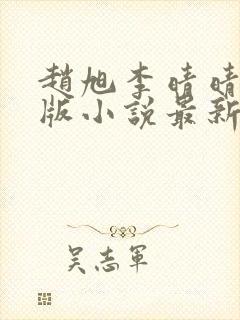 趙旭李晴晴
版小說最新
吴志軍